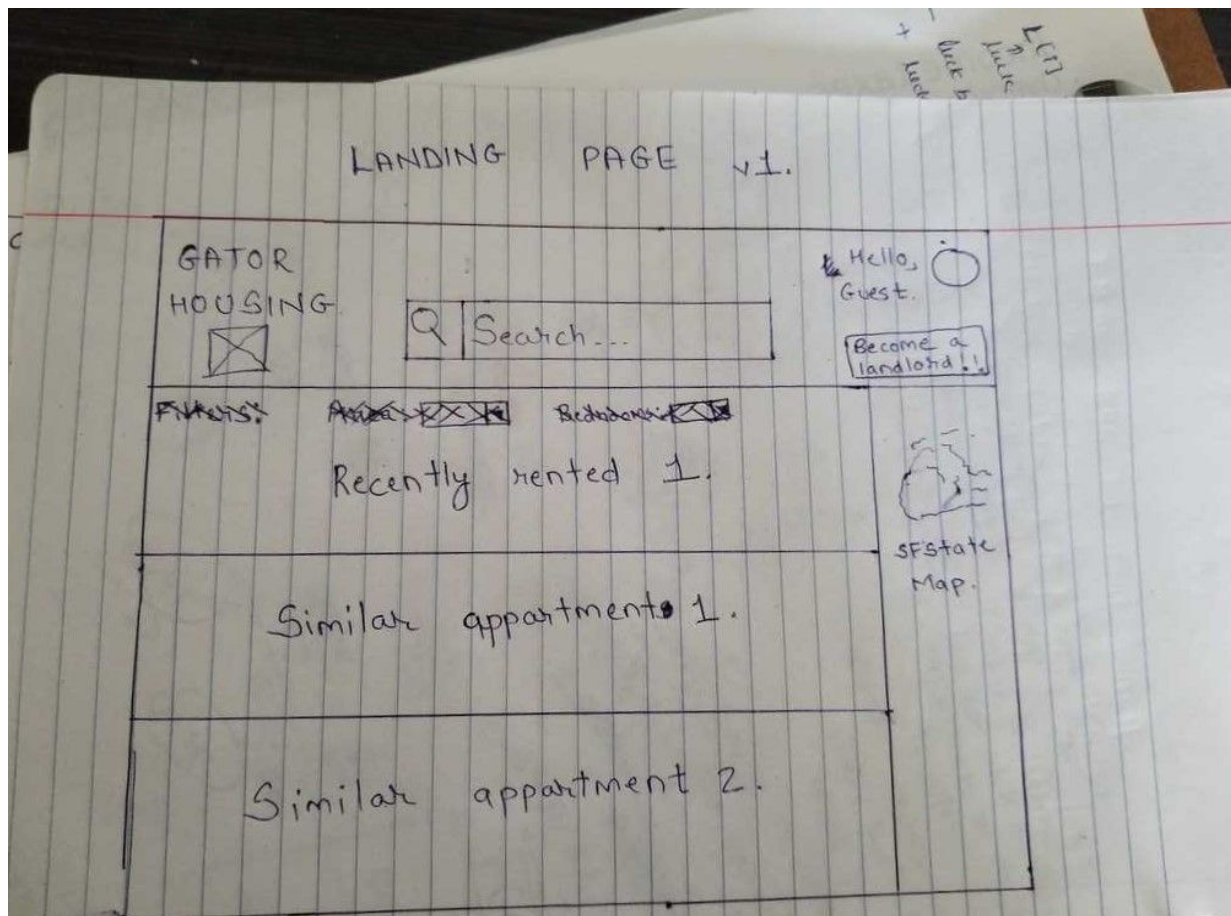 LANDING PAGE v1.
GATOR
HOUSING
Search...
Hello,
Guest.
Become a
landlord!!
Filters:
Recently rented 1.
SFState
Map.
Similar appartment 1.
Similar appartment 2.